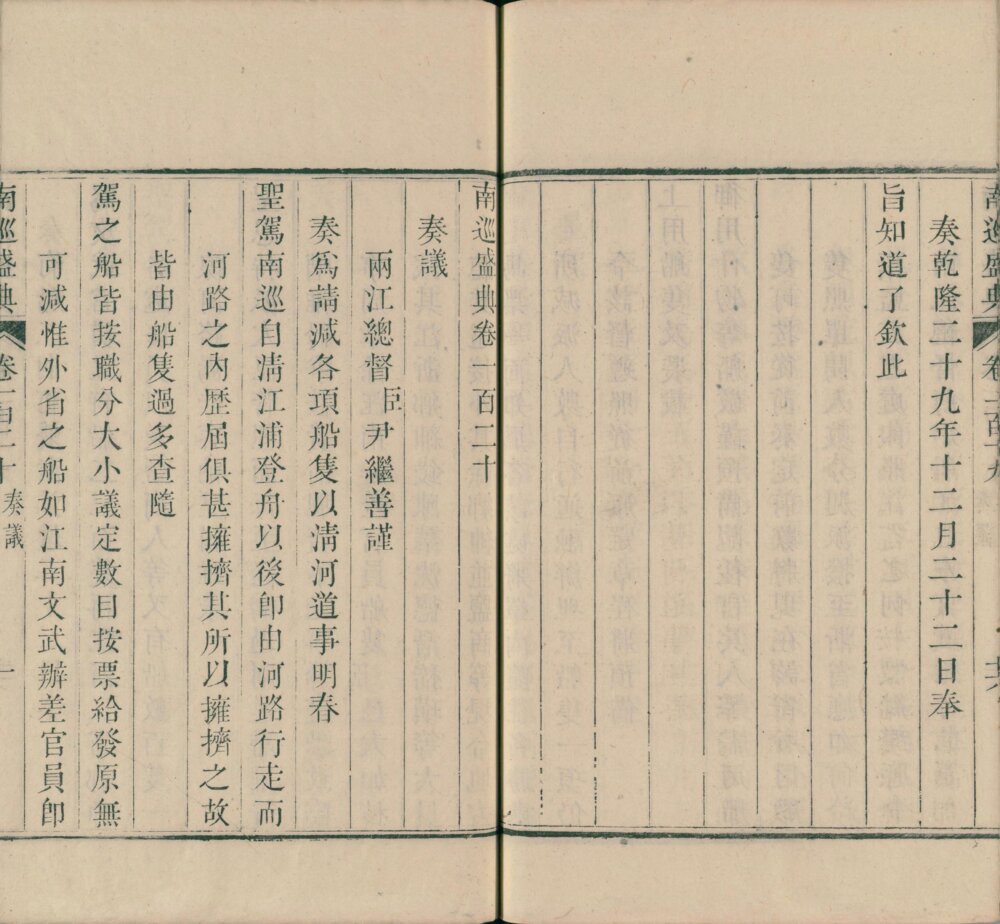 奏乾隆二十九年十二月二十二日奉
旨知道了欽此
南巡盛典卷一百二十
奏議
兩江總督臣尹繼善謹
奏爲請減各項船隻以清河道事明春
聖駕南巡自清江浦登舟以後卽由河路行走而
河路之內歷屆俱甚擁擠其所以擁擠之故
皆由船隻過多查隨
駕之船皆按職分大小議定數目按票給發原無
可減惟外省之船如江南文武辦差官員卽
南巡盛典 卷一百二十 奏議 一